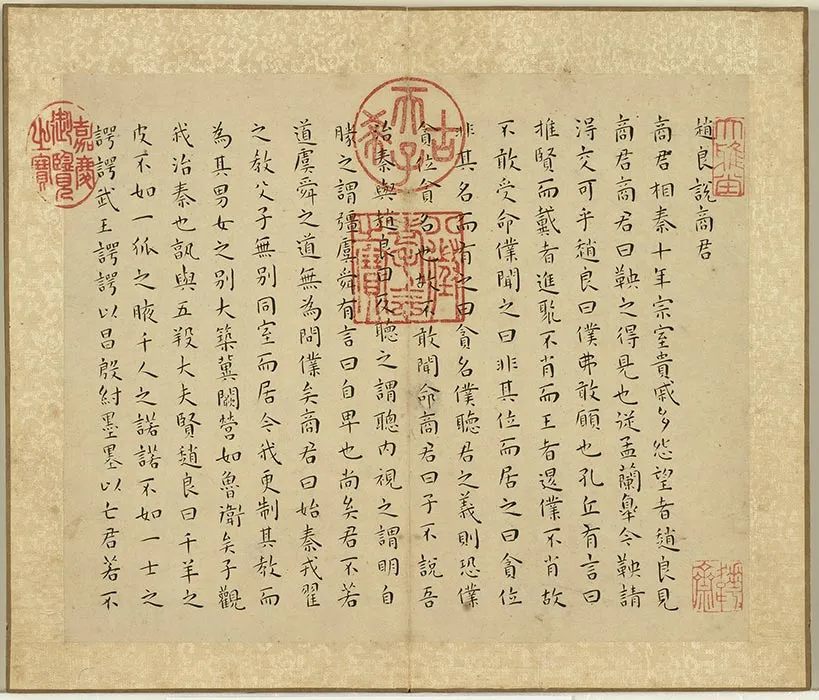 趙良說商君
商君相秦十年宗室貴戚多怨望者趙良見
商君商君曰鞅之得見也從孟蘭皋今鞅請
得交可乎趙良曰僕弗敢願也孔丘有言曰
推賢而戴者進聚不肖而王者退僕不肖故
不敢受命僕聞之曰非其位而居之曰貪位
非其名而有之曰貪名僕聽君之義則恐僕
貪位貪名也故不敢聞命商君曰子不說吾
治秦與趙良曰反聽之謂聰內視之謂明自
勝之謂彊虞舜有言曰自卑也尚矣君不若
道虞舜之道無為問僕矣商君曰始秦戎翟
之教父子無別同室而居今我更制其教而
為其男女之別大築冀闕營如魯衛矣子觀
我治秦也孰與五羖大夫賢趙良曰千羊之
皮不如一狐之腋千人之諾諾不如一士之
諤諤武王諤諤以昌殷紂墨墨以亡君若不
古希天子
嘉慶御覽之寶